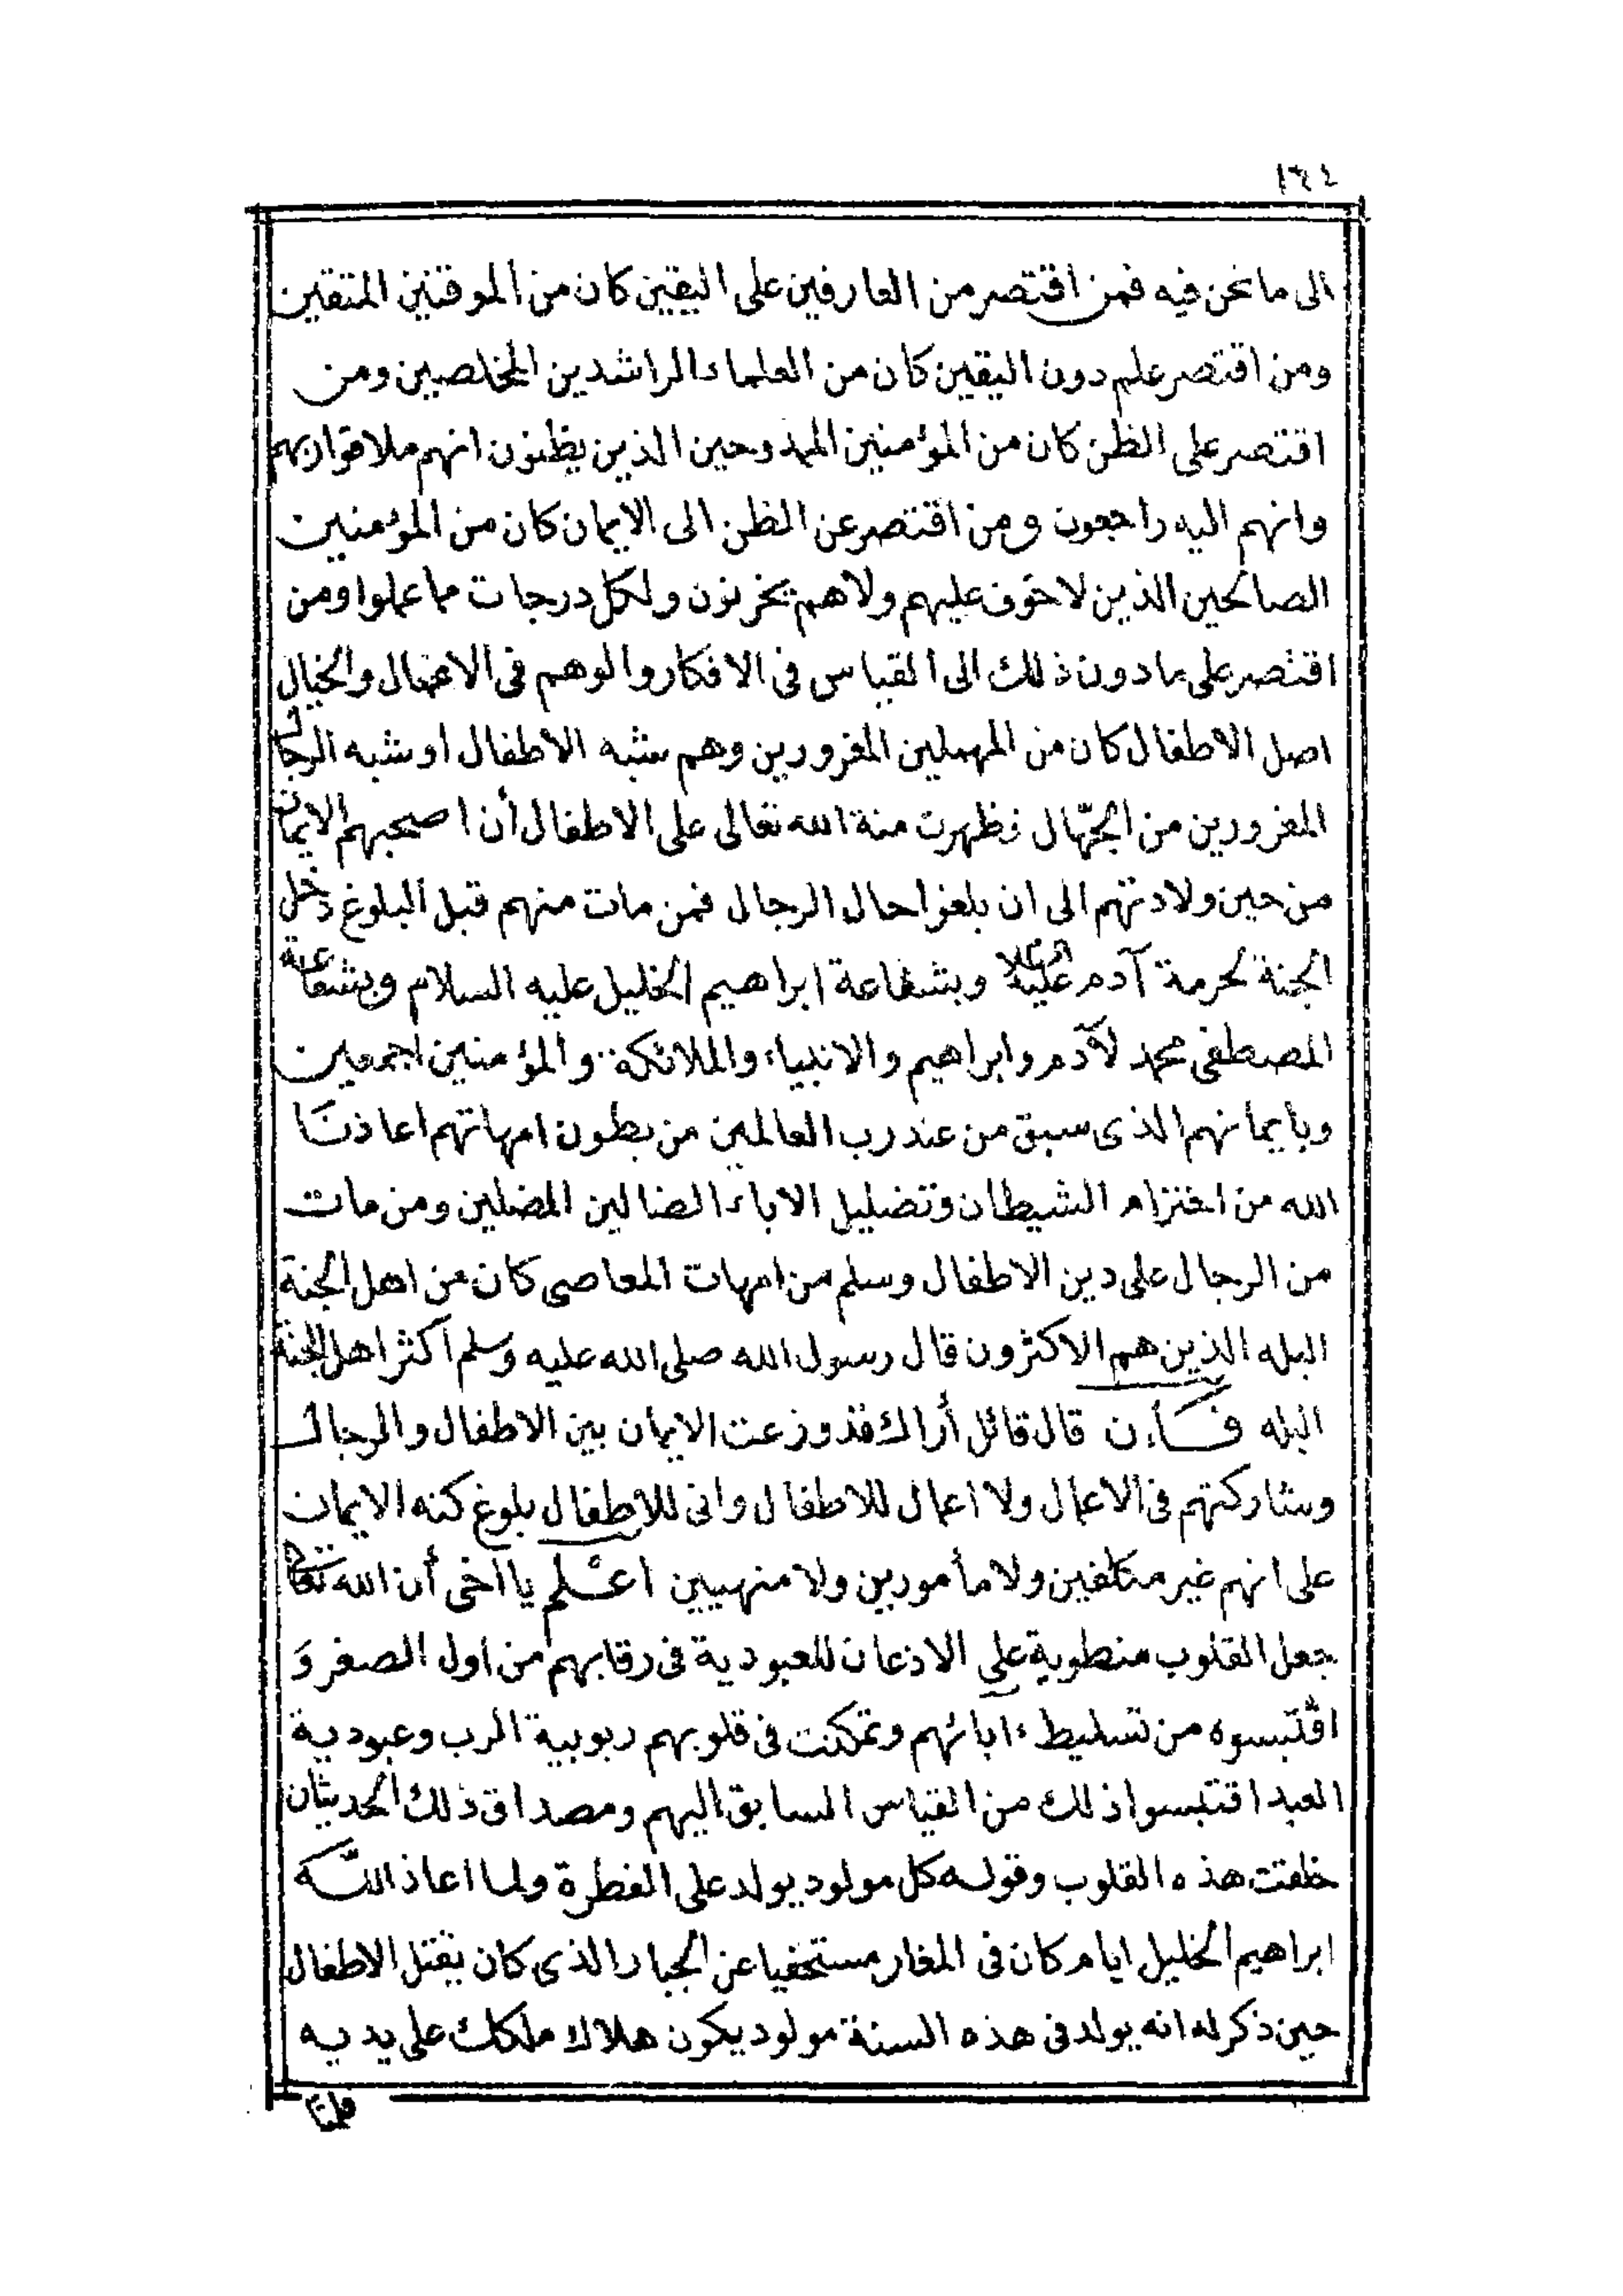 ١٦٤
الى ما نحن فيه فمن اقتصر من العارفين على اليقين كان من الموقنين المتقين
ومن اقتصر علم دون اليقين كان من العلماء الراشدين المخلصين ومن
اقتصر على الظن كان من المؤمنين الممدوحين الذين يظنون انهم ملاقوا ربهم
وانهم اليه راجعون ومن اقتصر عن الظن الى الايمان كان من المؤمنين
الصالحين الذين لا خوف عليهم ولا هم يحزنون ولكل درجات مما عملوا ومن
اقتصر على ما دون ذلك الى القياس فى الافكار والوهم فى الاعمال والخيال
اصل الاطفال كان من المهملين المغرورين وهم شبه الاطفال او شبه الرجال
المغرورين من الجهّال فظهرت منة الله تعالى على الاطفال أن اصحبهم الايمان
من حين ولادتهم الى ان بلغوا حال الرجال فمن مات منهم قبل البلوغ دخل
الجنة لحرمة آدم عليه السلام وبشفاعة ابراهيم الخليل عليه السلام وبشفاعة
المصطفى محمد لآدم وابراهيم والانبياء والملائكة والمؤمنين اجمعين
وبايمانهم الذى سبق من عند رب العالمين من بطون امهاتهم اعاذنَا
الله من اخترام الشيطان وتضليل الاباء الضالين المضلين ومن مات
من الرجال على دين الاطفال وسلم من امهات المعاصى كان من اهل الجنة
البله الذين هم الاكثرون قال رسول الله صلى الله عليه وسلم اكثر اهل الجنة
البله فان قال قائل أراك قد وزعت الايمان بين الاطفال والرجال
ومشاركتهم فى الاعمال ولا اعمال للاطفال وانى للاطفال بلوغ كنه الايمان
على انهم غير مكلفين ولا مأمورين ولا منهيين اعلم يا اخى أن الله تعالى
جعل القلوب منطوية على الاذعان للعبودية فى رقابهم من اول الصغر وَ
اقتبسوه من تسليط ءابائهم وتمكنت فى قلوبهم ربوبية الرب وعبودية
العبد اقتبسوا ذلك من القياس السابق اليهم ومصداق ذلك الحديثان
خلقت هذه القلوب وقوله كل مولود يولد على الفطرة ولما اعاذ اللّه
ابراهيم الخليل ايام كان فى المغار مستخفيا عن الجبار الذى كان يقتل الاطفال
حين ذكر له انه يولد فى هذه السنة مولود يكون هلاك ملكك على يديه